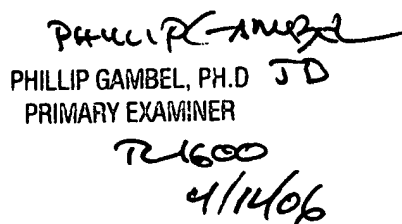 PHILLIP GAMBEL
PHILLIP GAMBEL, PH.D JD
PRIMARY EXAMINER
TC 1600
4/14/06